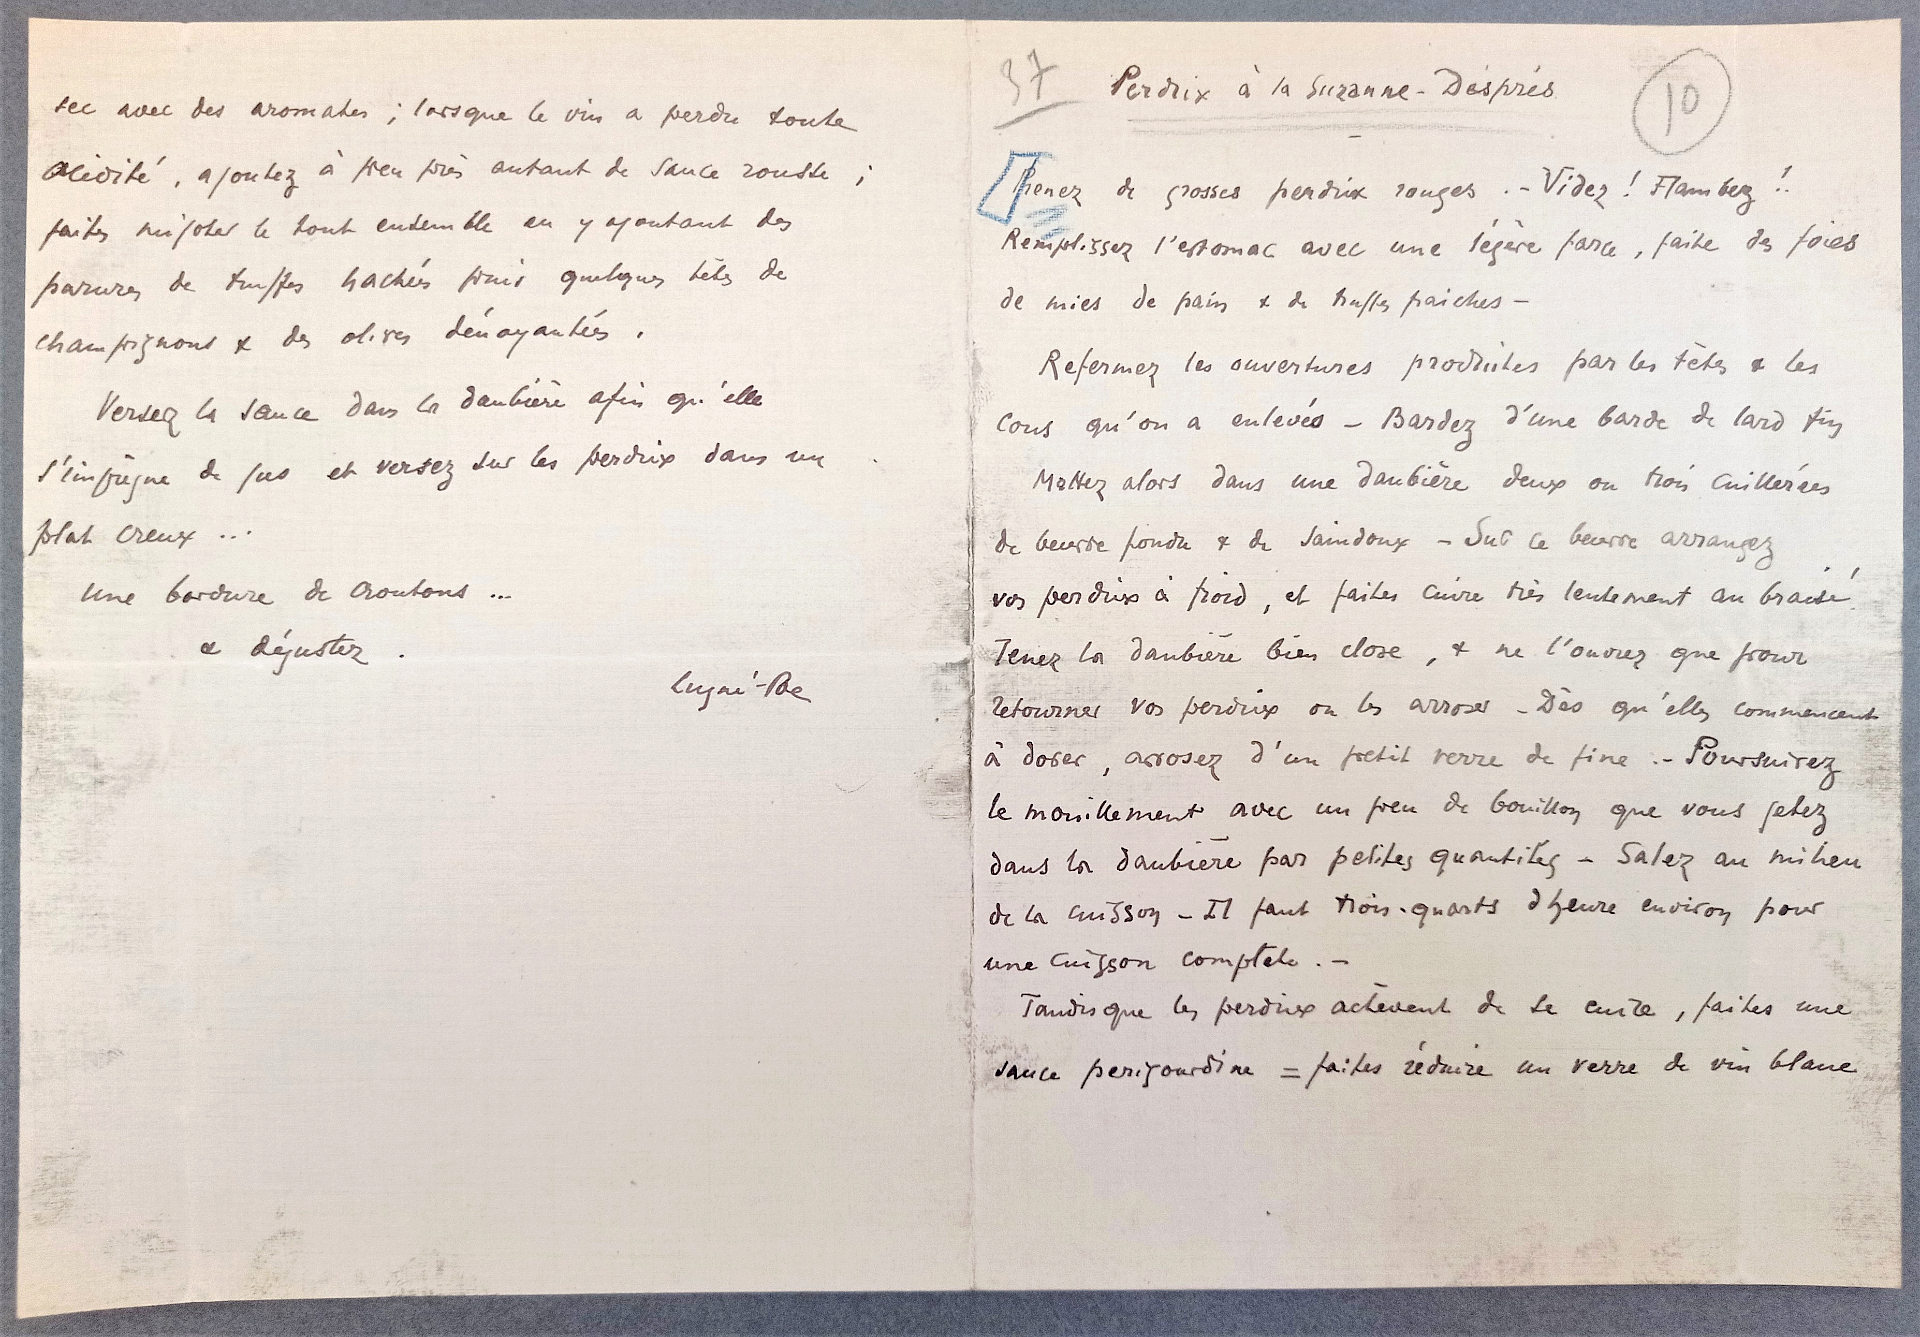 37
Perdrix à la Suzanne-Després
10
Prenez de grosses perdrix rouges .- Videz ! Flambez !
Remplissez l'estomac avec une légère farce, faite des foies
de mies de pain & de truffes fraiches -
Refermez les ouvertures produites par les têtes & les
cous qu'on a enlevés - Bardez d'une barde de lard fin
Mettez alors dans une daubière deux ou trois cuillerées
de beurre fondu & de saindoux - Sur ce beurre arrangez
vos perdrix à froid, et faites cuire très lentement au braisé.
Tenez la daubière bien close, & ne l'ouvrez que pour
retourner vos perdrix ou les arroser - Dès qu'elles commencent
à dorer, arrosez d'un petit verre de fine .- Poursuivez
le mouillement avec un peu de bouillon que vous jetez
dans la daubière par petites quantités - Salez au milieu
de la cuisson - Il faut trois-quarts d'heure environ pour
une cuisson complète . -
Tandis que les perdrix achèvent de se cuire, faites une
sauce perigourdine = faites réduire un verre de vin blanc
sec avec des aromates ; lorsque le vin a perdu toute
acidité, ajoutez à peu près autant de sauce rousse ;
faites mijoter le tout ensemble en y ajoutant des
parures de truffes hachées puis quelques têtes de
champignons & des olives dénoyautées .
Versez la sauce dans la daubière afin qu'elle
s'imprègne de jus et versez sur les perdrix dans un
plat creux ...
une bordure de croutons ...
& dégustez .
Lugné-Poe